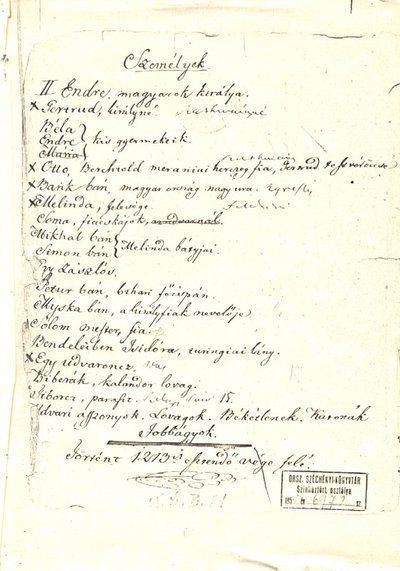 Személyek
II Endre, magyarok királya.
x Gertrud, királyné.
Béla
Endre } kis gyermekeik
Mária
x Otto, Berchtold meraniai herczeg fia, Gertrud testvéröccse
x Bánk bán, magyar ország nagyura.
x Melinda, felesége
Soma, fiacskájok,
Mikhál bán } Melinda bátyjai.
Simon bán
Egy Zászlós.
Petur bán, bihari főispán.
Myska bán, a királyfiak nevelője
Solom mester, fia
Bendeleiben Izidóra, turingiai lány.
x Egy udvaroncz.
Biberák, kalandor lovag.
Tiborcz, paraszt. 15.
Udvari asszonyok. Lovagok. Békétlenek. Katonák
Jobbágyok.
Történt 1213 esztendő vége felé.
ORSZ. SZÉCHÉNYI-KÖNYVTÁR
Színháztört. osztálya